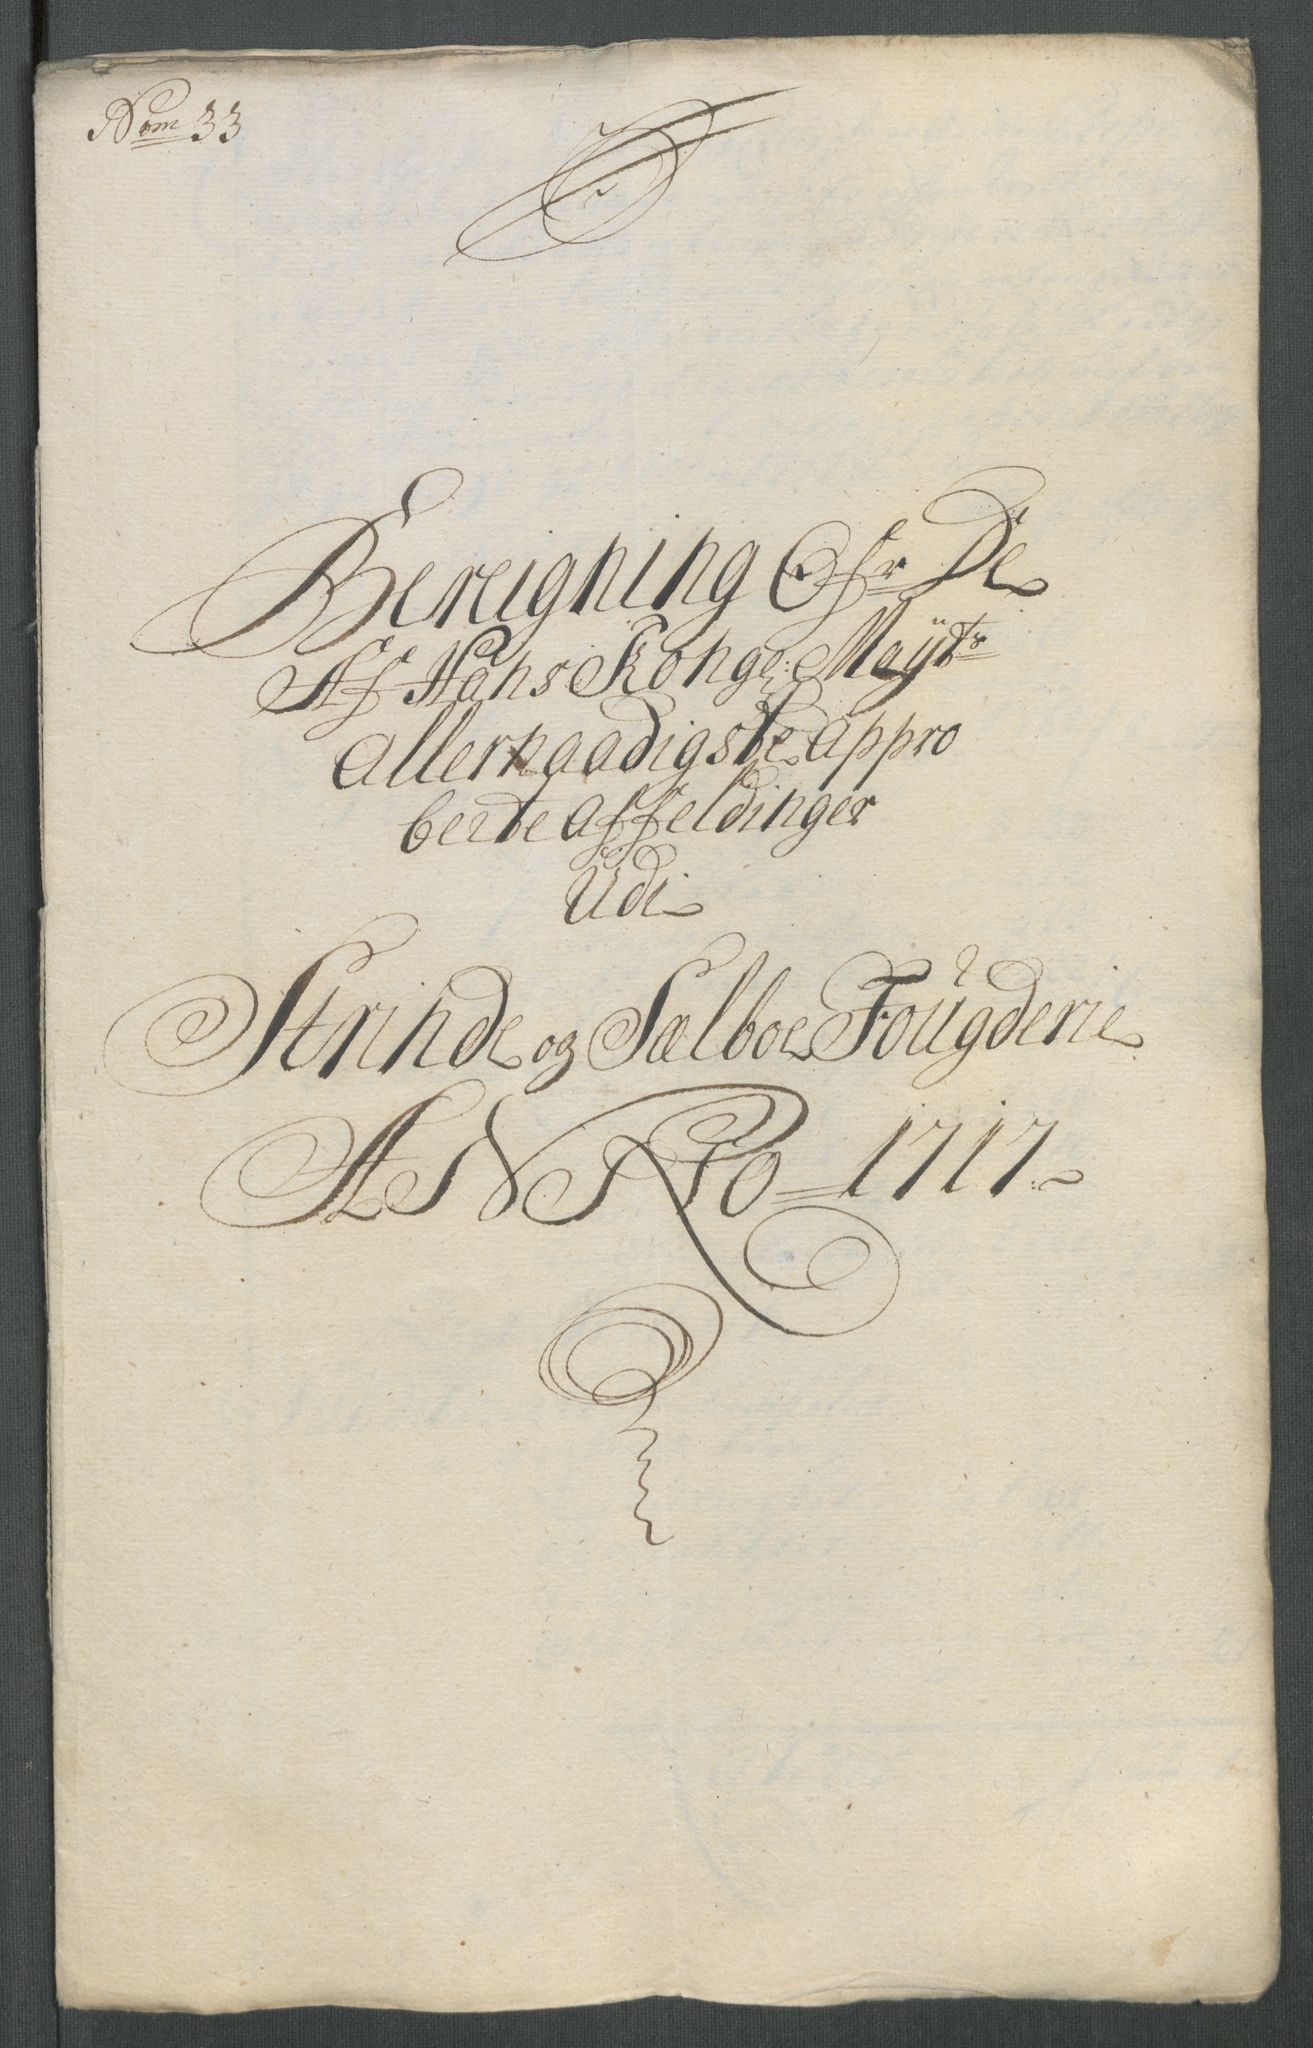 Nom 33
Bereigning Ofr De
Aff Hans Konge: Mayts
allernaadigste appro
berte affeldinger
Udi
Strinde og Sælboe Foùgderie
ANNO 1717